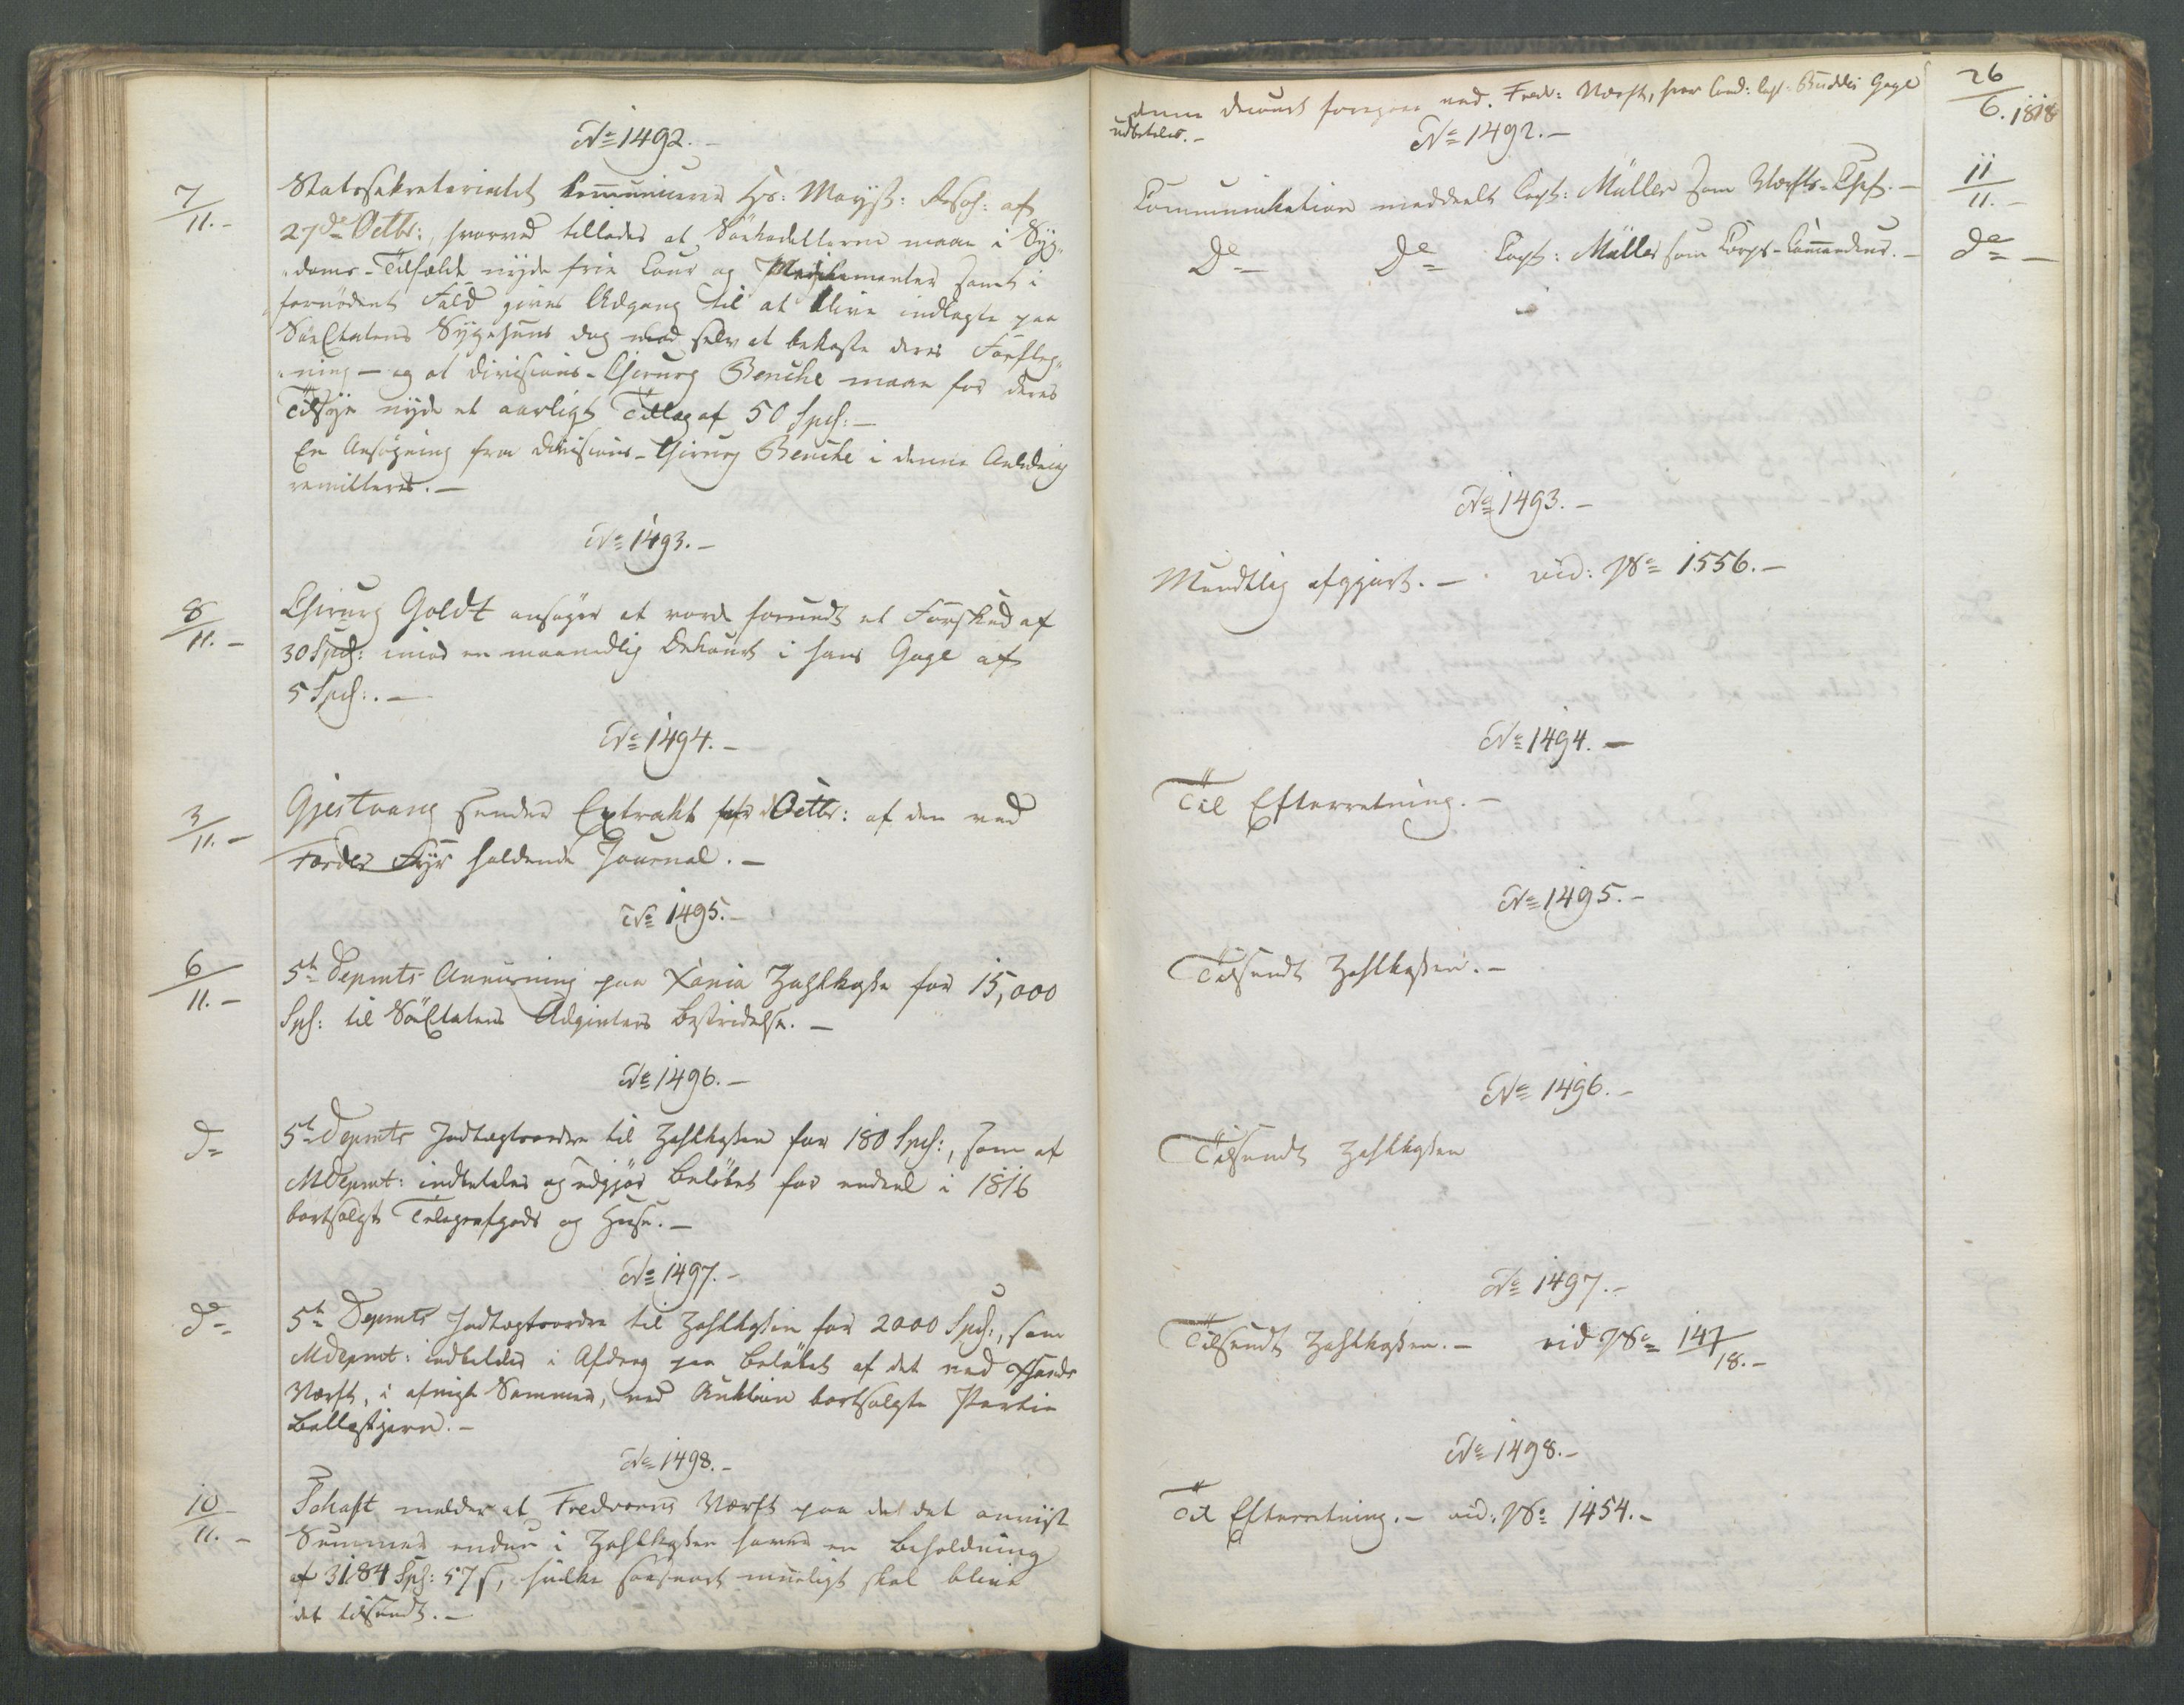 No 1492.-
7/11.-
Statssekretariatet kommunicerer Hs: Mayst: Resol: af
27de Octbr:, hvorved tillades at Søekadetterne maae i Syg-
doms-Tilfælde nyde frie Cour og Medikamenter samt i
fornødent Fald gives Adgang til at blive indlagte paa
SøeEtatens Sygehuus dog mod selv at bekoste deres Forpleg-
ning - og at Divisions-Chirurg Benche maae for deres
Tilsyn nyde et aarligt Tillæg af 50 Spd:-
En Ansøgning fra Divisions-Chirurg Benche i denne Anledning
remitteres.-
No 1493.-
8/11.-
Chirurg Goldt ansøger at vorde forundt et Forskud af
30 Spd: imod en maanedlig Dekourt i hans Gage af
5 Spd:.-
No 1494.-
3/11.-
Gjestvang sender Extrakt for Octbr: af den ved
Færder Fyr holdende Journal.-
No 1495.-
6/11.-
5te Depmts Anviisning paa Xania Zahlkasse for 15,000
Spd: til SøeEtatens Udgivters Bestridelse.-
No 1496.-
do
5te Depmts Indtægtsordre til Zahlkassen for 180 Spd:, som af
MDepmt: indbetales og udgjør Beløbet for endeel i 1816
bortsolgt Telegrafgods og Huse.-
No 1497.-
do
5te Depmts Indtægtsordre til Zahlkassen for 2000 Spd:, som
MDepmt: indbetales i Afdrag paa Beløbet af det ved Xsands
Værft, i afvigte Sommer, ved Auktion bortsolgte Partie
Ballastjern.-
No 1498.-
10/11.-
Schaft melder at Fredværns Værft paa det det anviist
Summer endnu i Zahlkassen haver en Beholdning
af 3184 Spd: 57 s, hvilke saasnart mueligt skal blive
det tilsendt.-
denne Decourt foregaae ved. Fredv: Værft, hvor Cand: Capt: Buddes Gage
udbetales.-
26/6. 1818
No 1492.-
Communikation meddeelt Capt: Müller som Værfts-Chef.-
11/11.-
Do Do Capt: Müller som Corps-Commandeur.-
do-
No 1493.-
Mundtlig afgjort.- vid: No 1556.-
No 1494.-
Til Efterretning.-
No 1495.-
Tilsendt Zahlkassen.-
No 1496.-
Tilsendt Zahlkassen
No 1497.-
Tilsendt Zahlkassen.- vid No 147/18.-
No 1498.-
Til Efterretning.- vid: No 1454.-